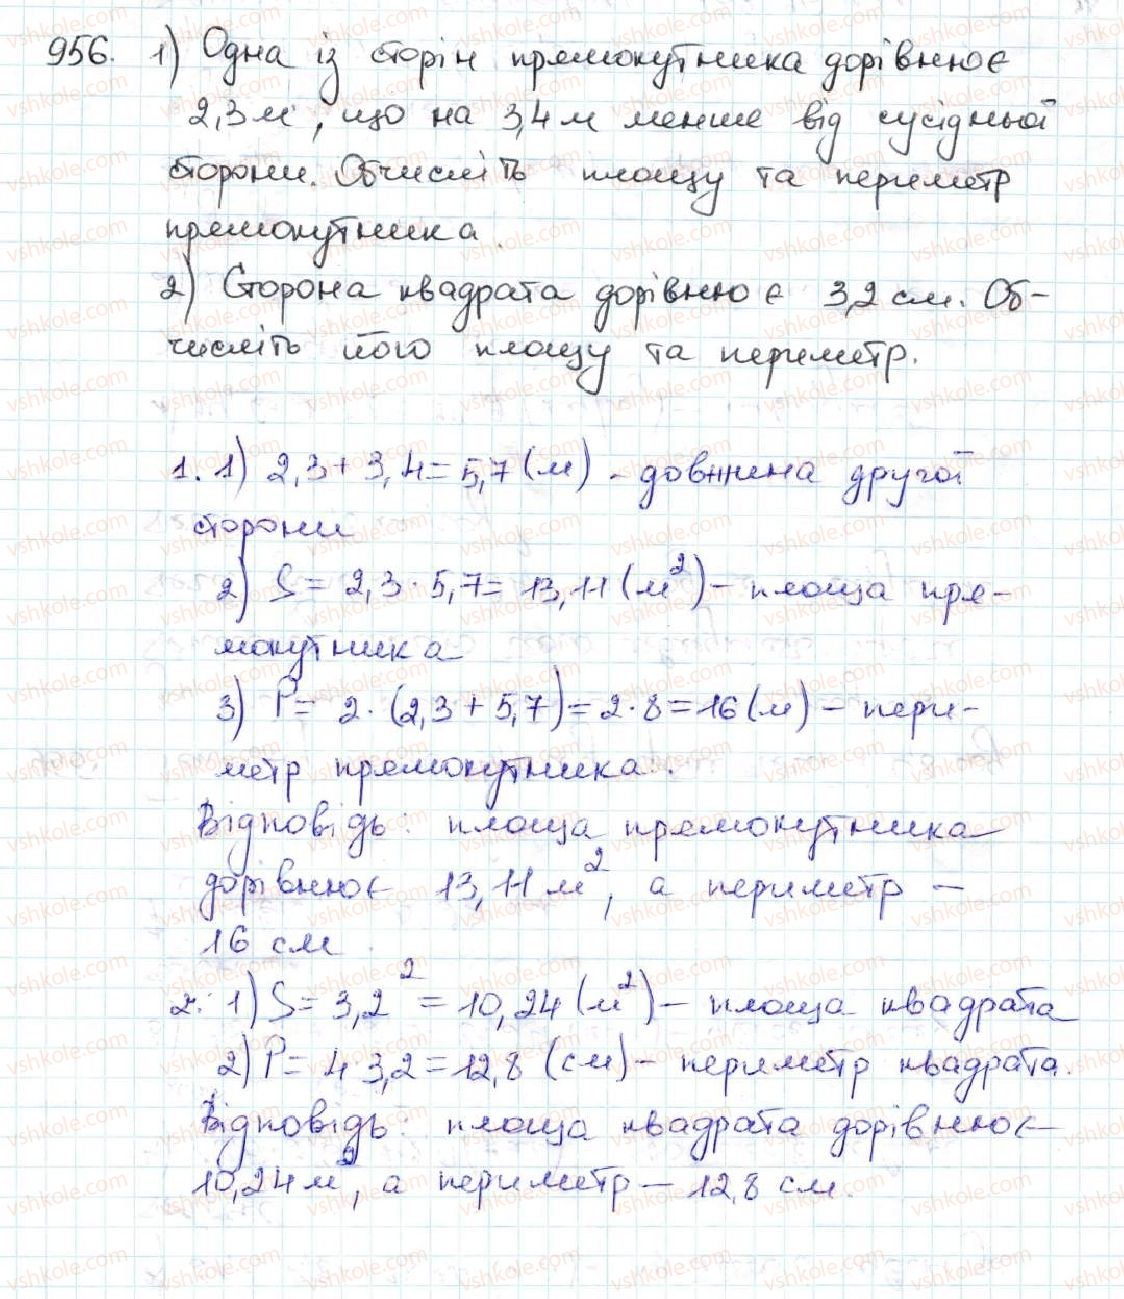 956. 1) Одна із сторін прямокутника дорівнює
2,3 м, що на 3,4 м менше від сусідньої
сторони. Обчисліть площу та периметр
прямокутника.
2) Сторона квадрата дорівнює 3,2 см. Об-
числіть його площу та периметр.
1. 1) 2,3 + 3,4 = 5,7 (м) - довжина другої
сторони
2) S = 2,3 · 5,7 = 13,11 (м²) - площа пря-
мокутника
3) P = 2 · (2,3 + 5,7) = 2 · 8 = 16 (м) - пери-
метр прямокутника.
Відповідь: площа прямокутника
дорівнює 13,11 м², а периметр -
16 см.
2. 1) S = 3,2² = 10,24 (м²) - площа квадрата
2) P = 4 · 3,2 = 12,8 (см) - периметр квадрата.
Відповідь: площа квадрата дорівнює
10,24 м², а периметр - 12,8 см.
vshkole.com